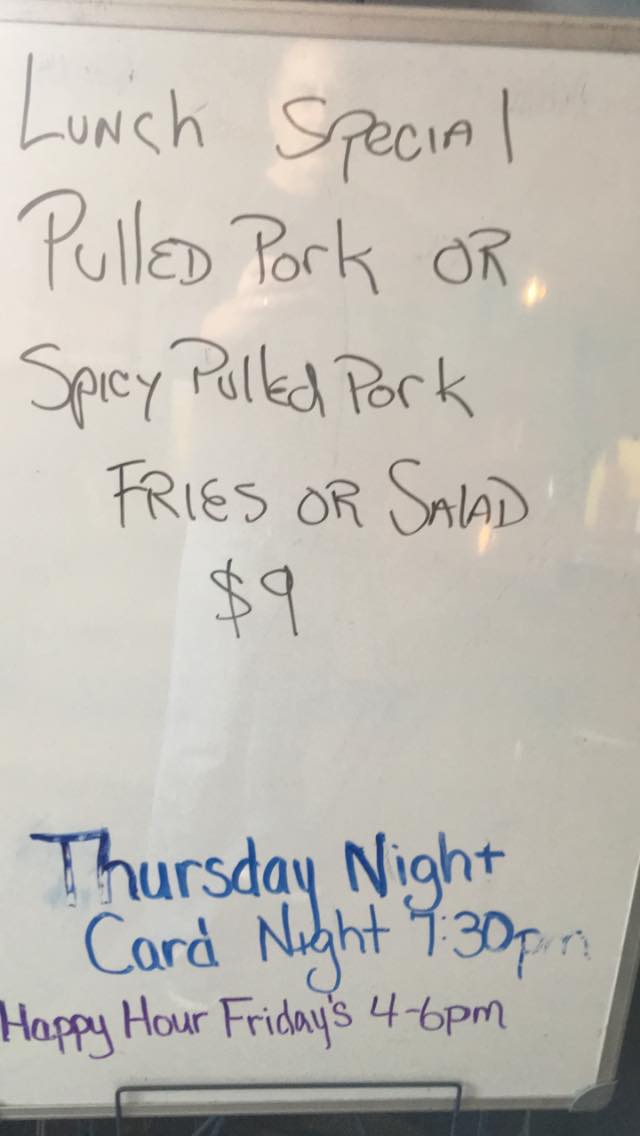 Lunch Special
Pulled Pork OR
Spicy Pulled Pork
FRIES OR SALAD
$9
Thursday Night
Card Night 7:30pm
Happy Hour Friday's 4-6pm